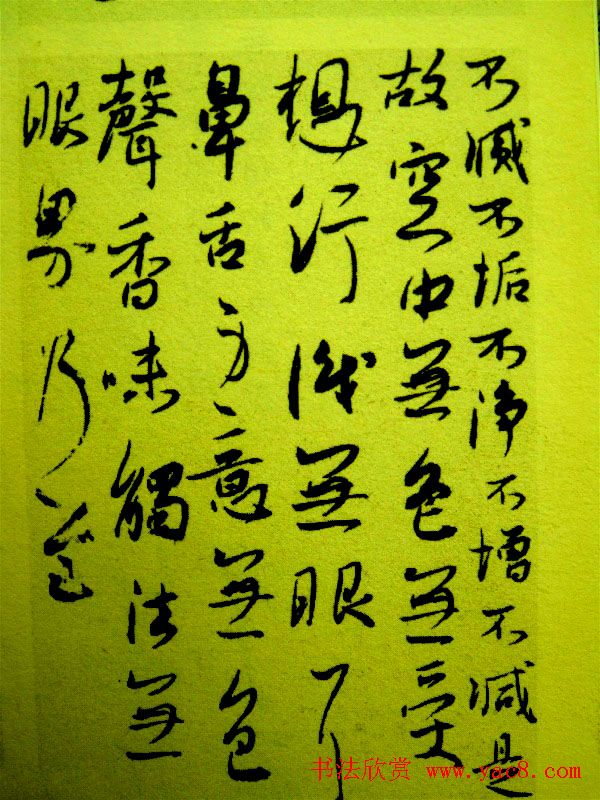 不滅不垢不净不增不減是
故空中無色無受
想行識無眼耳
鼻舌身意無色
聲香味觸法無
眼界乃至
书法欣赏 www.yac8.com